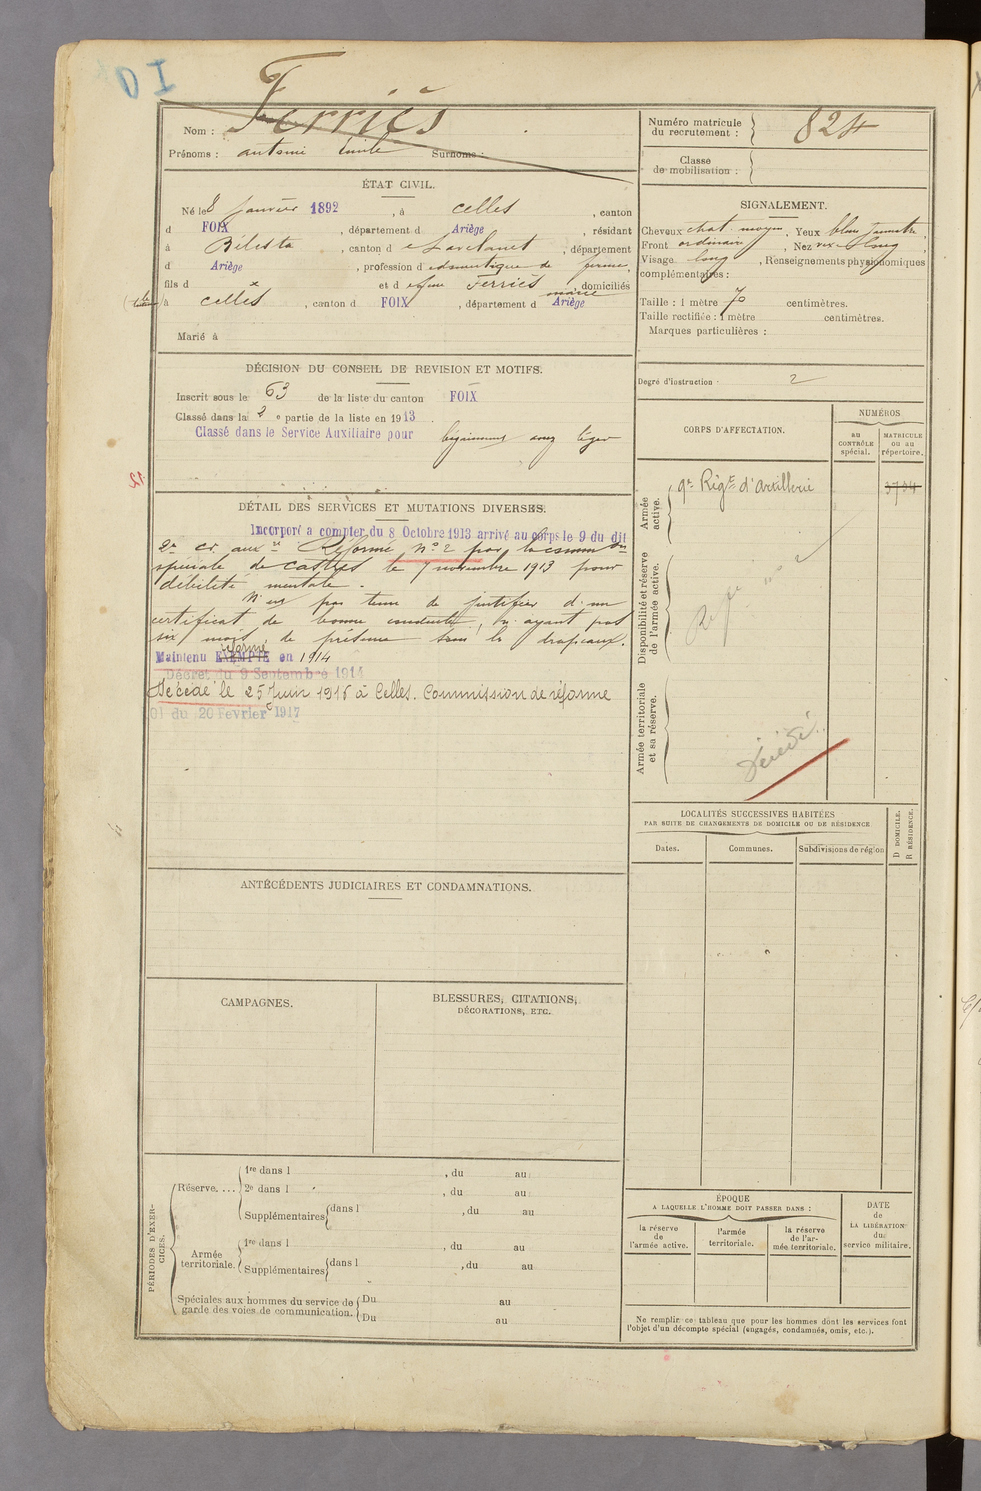 Nom : Ferriés
Prénoms : antoine Emile Surnoms :
Numéro matricule du recrutement : 824
Classe de mobilisation :
ÉTAT CIVIL.
Né le 8 janvier 1892, à Celles, canton
d FOIX, département d Ariège, résidant
à Bélesta, canton de Lavelanet, département
d Ariège, profession de domestique de ferme,
fils d x et d Ferriés, domiciliés
à Celles, canton d FOIX, département d Ariège
Marié à
SIGNALEMENT.
Cheveux chat. moyen. Yeux bleu
Front ordinaire, Nez long
Visage long, Renseignements physionomiques
complémentaires :
Taille : 1 mètre 70 centimètres.
Taille rectifiée : 1 mètre centimètres.
Marques particulières :
Degré d'instruction 2
DÉCISION DU CONSEIL DE REVISION ET MOTIFS.
Inscrit sous le 63 de la liste du canton FOIX
Classé dans la 2e partie de la liste en 1913.
Classé dans le Service Auxiliaire pour bégaiement assez léger
CORPS D'AFFECTATION.
NUMÉROS
au CONTRÔLE spécial.
MATRICULE ou au répertoire.
Armée active.
9e Rigt d'Artillerie
3794
Disponibilité et réserve de l'armée active.
Armée territoriale et sa réserve.
Décédé
DÉTAIL DES SERVICES ET MUTATIONS DIVERSES.
Incorporé a compter du 8 Octobre 1913 arrivé au corps le 9 du dit
2e cr auxre Réformé n° 2 par la common
spéciale de Castres le 7 novembre 1913 pour
débilité mentale.
N'est pas tenu de justifier d'un
certificat de bonne conduite, n'ayant pas
six mois de présence sous les drapeaux.
Maintenu EXEMPTE réformé en 1914
Décret du 9 Septembre 1914
Décédé le 25 Juin 1915 à Celles. Commission de réforme
01 du 20 Février 1917
LOCALITÉS SUCCESSIVES HABITÉES
PAR SUITE DE CHANGEMENTS DE DOMICILE OU DE RÉSIDENCE
Dates.
Communes.
Subdivisions de région
D DOMICILE.
R RÉSIDENCE.
ANTÉCÉDENTS JUDICIAIRES ET CONDAMNATIONS.
CAMPAGNES.
BLESSURES, CITATIONS,
DÉCORATIONS, ETC.
PÉRIODES D'EXERCICES.
Réserve. ...
1re dans l , du au
2e dans l , du au
Supplémentaires dans l , du au
Armée territoriale.
1re dans l , du au
Supplémentaires dans l , du au
Spéciales aux hommes du service de garde des voies de communication.
Du au
Du au
ÉPOQUE
A LAQUELLE L'HOMME DOIT PASSER DANS :
la réserve de l'armée active.
l'armée territoriale.
la réserve de l'armée territoriale.
DATE de LA LIBÉRATION du service militaire.
Ne remplir ce tableau que pour les hommes dont les services font
l'objet d'un décompte spécial (engagés, condamnés, omis, etc.).